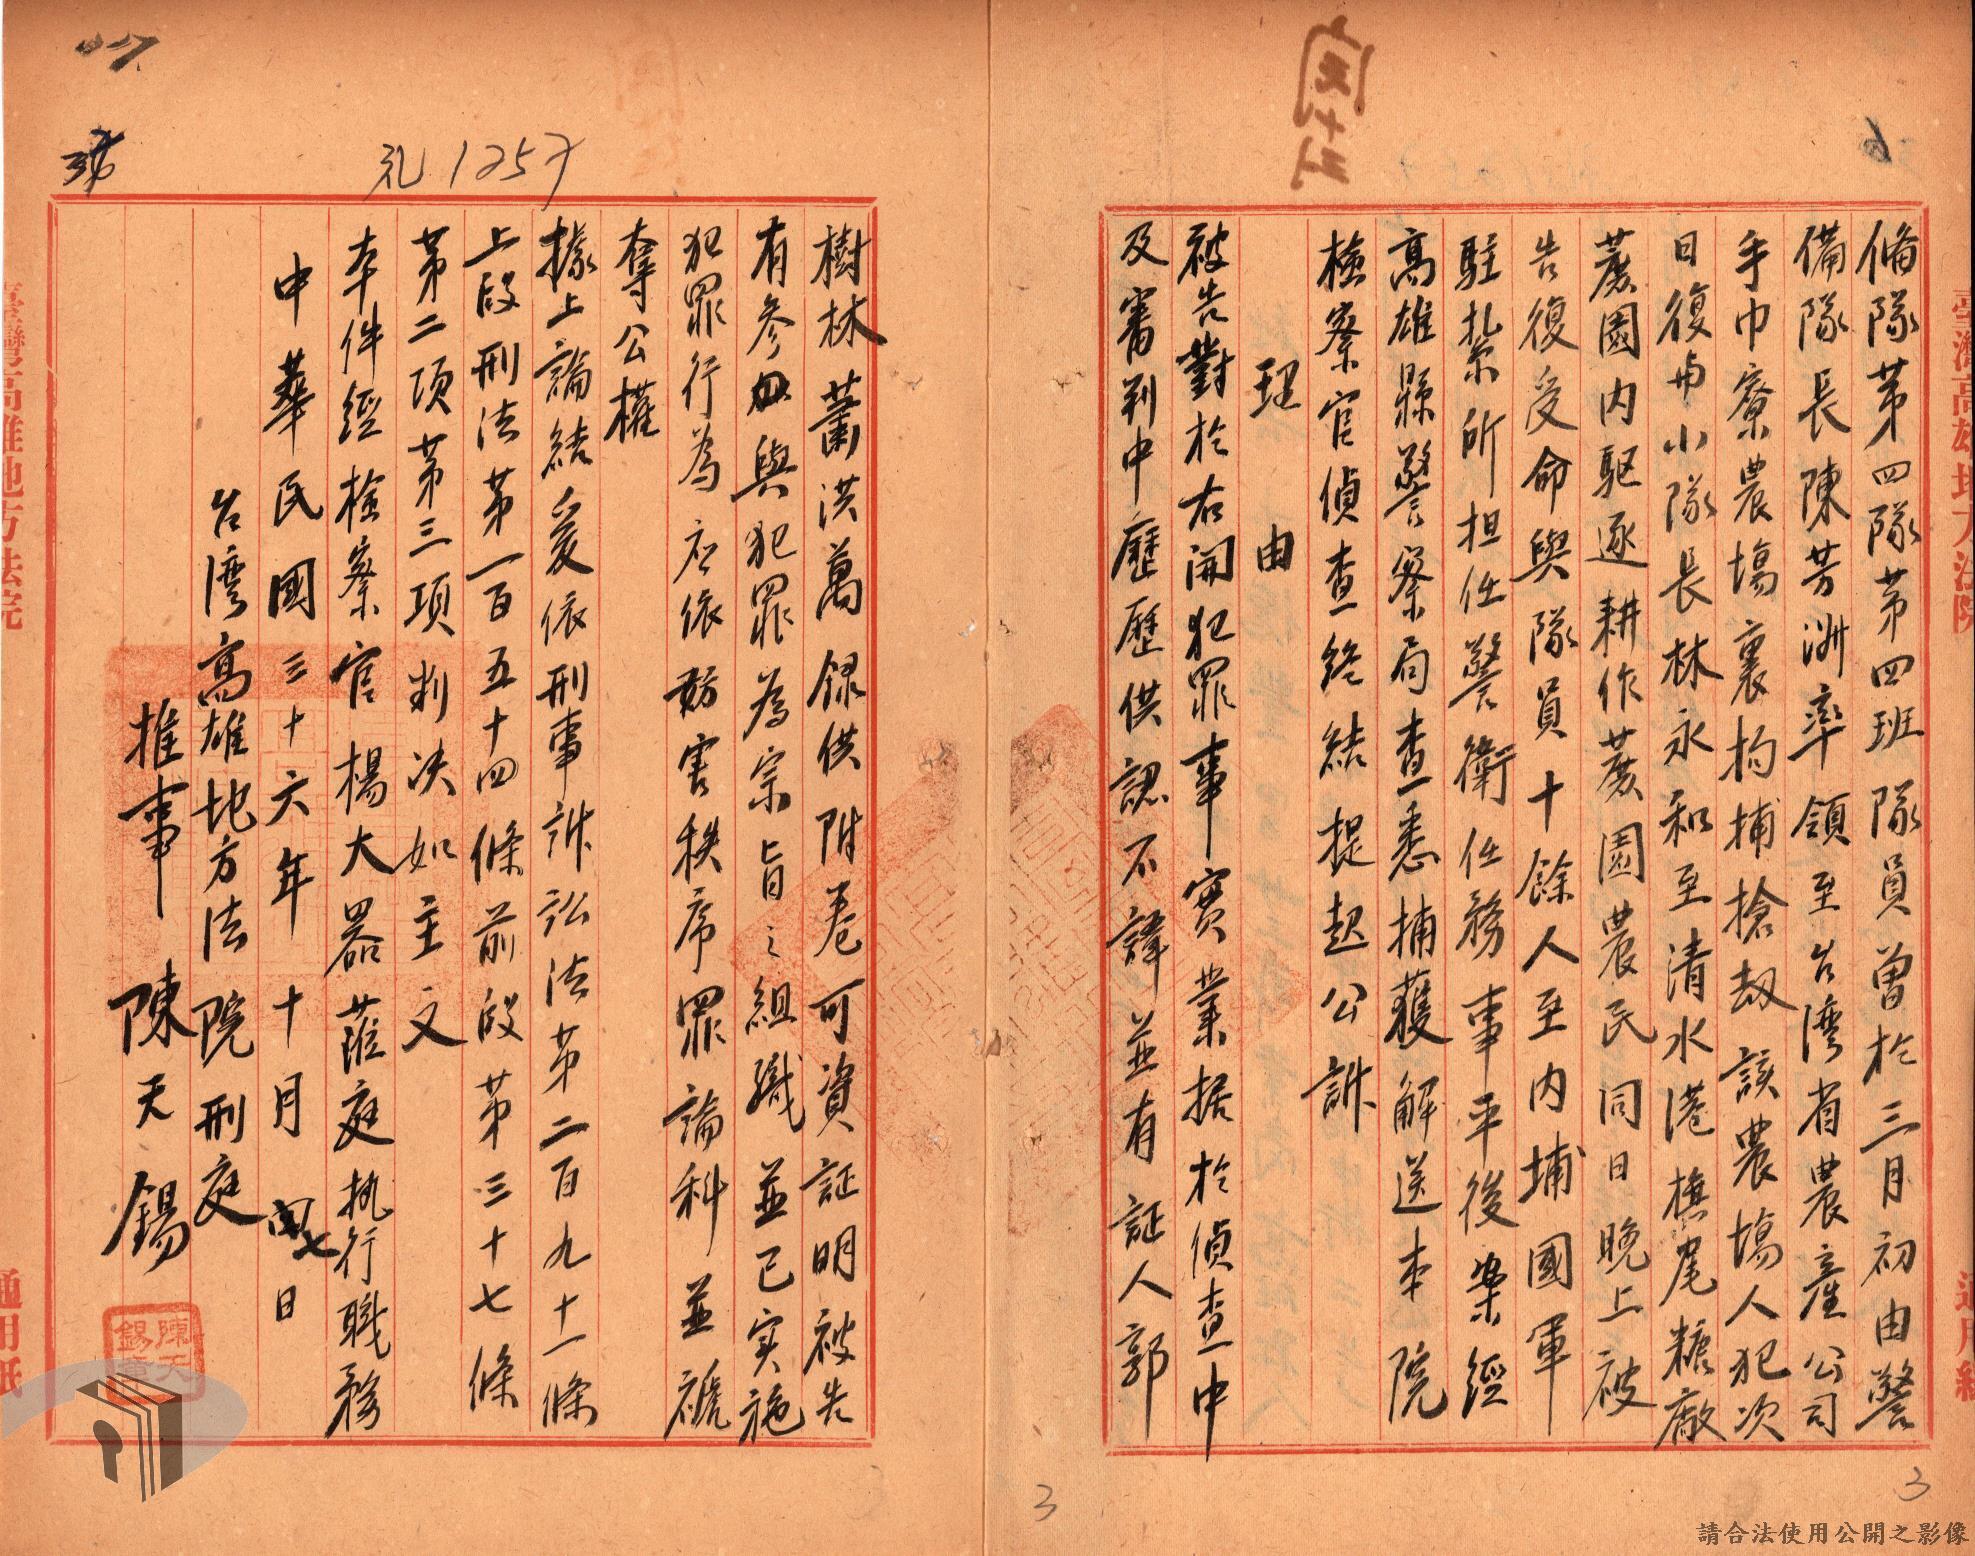 備隊第四隊第四班隊員曾於三月初由警
備隊長陳芳洲率領至台灣省農產公司
手巾寮農場裏拘捕搶劫該農場人犯次
日復由小隊長林永和至清水港橋尾糖廠
蔗園內驱逐耕作蔗園農民同日晚上被
告復受命與隊員十餘人至內埔國軍
駐紮所担任警衛任務事平後案經
高雄縣警察局查悉捕獲解送本院
檢察官偵查終結提起公訴
理由
被告對於右開犯罪事實業据於偵查中
及審判中歷歷供認不諱並有証人郭
樹林蕭洪萬錄供附卷可資証明被告
有參與犯罪為宗旨之組織並已实施
犯罪行為应依妨害秩序罪論科並褫
奪公權
據上論結爰依刑事訴訟法第二百九十一條
上段刑法第一百五十四條前段第三十七條
第二項第三項判決如主文
本件經檢察官楊大器蒞庭執行職務
中華民國三十六年十月七日
台灣高雄地方法院刑庭
推事 陳天錫
陳天錫
臺灣高雄地方法院
通用紙
臺灣高雄地方法院
通用紙
1257
6
3
3
請合法使用公開之影像